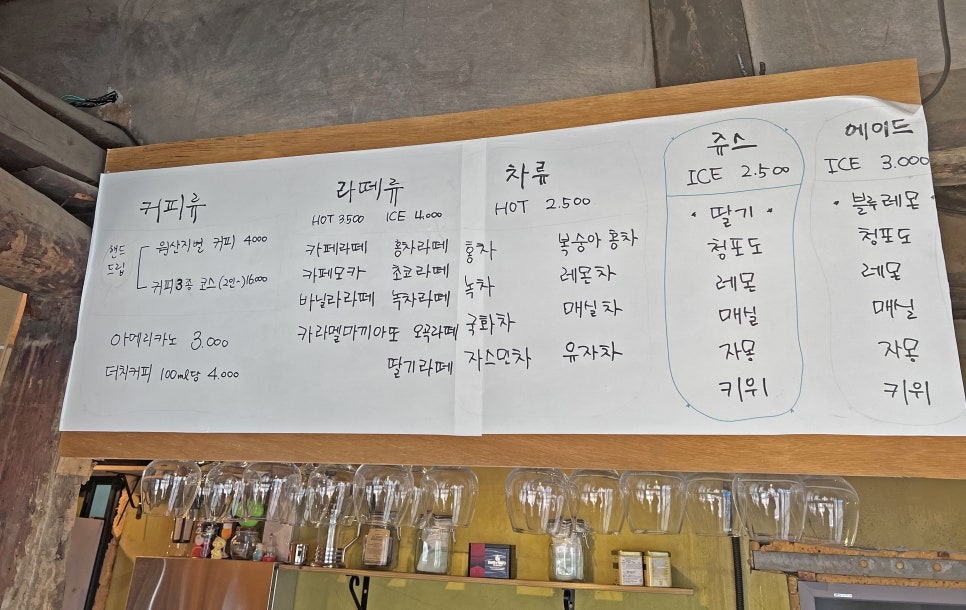 커피류
핸드
드립
원산지별 커피 4000
커피3종 코스(2인~)16.000
아메리카노 3.000
더치커피 100ml당 4.000
라떼류
HOT 3500 ICE 4.000
카페라떼 홍차라떼
카페모카 초코라떼
바닐라라떼 녹차라떼
카라멜마끼아또 오곡라떼
딸기라떼
차류
HOT 2.500
홍차 복숭아 홍차
녹차 레몬차
국화차 매실차
자스민차 유자차
쥬스
ICE 2.500
• 딸기 •
청포도
레몬
매실
자몽
키위
에이드
ICE 3.000
• 블루레몬 •
청포도
레몬
매실
자몽
키위